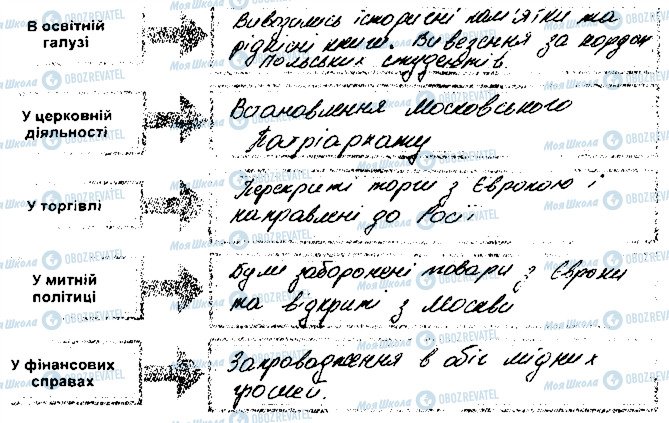 В освітній
галузі
Вивозились історичні пам'ятки та
рідкісні книги. Вивезення за кордон
польських студентів.
У церковній
діяльності
Встановлення Московського
Патріархату
У торгівлі
Перекриті торги з Європою і
направлені до Росії
У митній
політиці
Були заборонені товари з Європи
та відкриті з Москви
У фінансових
справах
Запровадження в обіг мідних
грошей.